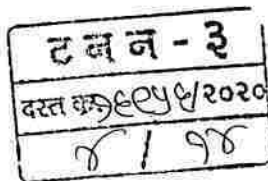 ट न न - ३
दस्त क्र. /२०२०
४ / १४